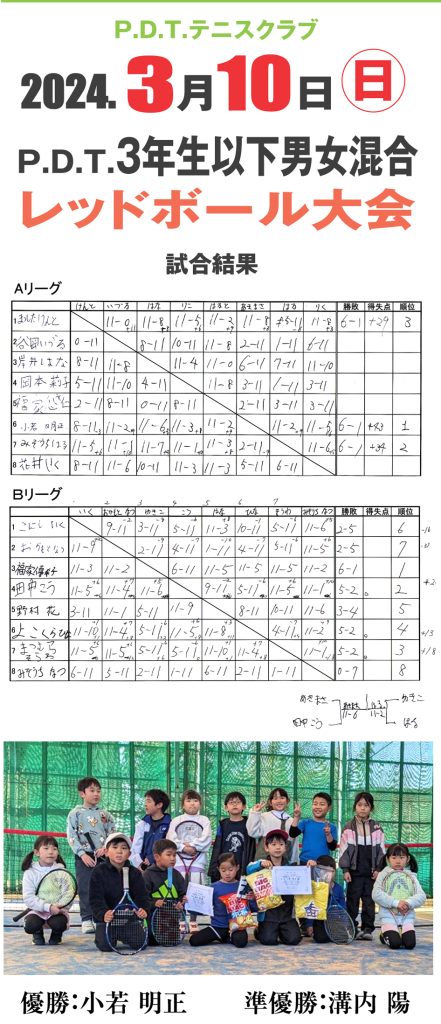 P.D.T.テニスクラブ
2024. 3月10日 日
P.D.T.3年生以下男女混合
レッドボール大会
試合結果
Aリーグ
けんと いづる はな りこ はると あきまさ はる りく 勝敗 得失点 順位
1 11-0 11-8 11-5 11-2 11-8 5-11 11-8 6-1 +29 3
2 谷田いづる 0-11 8-11 10-11 11-8 2-11 1-11 6-11
3 岸井はな 8-11 11-8 11-4 11-0 6-11 7-11 11-10
4 岡本莉子 5-11 11-10 4-11 11-8 3-11 1-11 3-11
5 2-11 8-11 0-11 8-11 2-11 3-11 3-11
6 小若明正 8-11 11-2 11-6 11-3 11-2 11-2 11-5 6-1 +43 1
7 11-5 11-1 11-7 11-1 11-3 2-11 11-6 6-1 +34 2
8 花村りく 8-11 11-6 10-11 11-3 11-3 5-11 6-11
Bリーグ
勝敗 得失点 順位
1 9-11 3-11 5-11 11-3 10-11 5-11 11-6 2-5 6
2 11-9 2-11 4-11 1-11 4-11 5-11 11-5 2-5 7
3 11-3 11-2 11-6 11-5 11-5 5-11 11-2 6-1 1
4 田中こう 11-5 11-4 6-11 9-11 11-5 11-5 11-1 5-2 2
5 野村花 3-11 11-1 5-11 11-9 8-11 10-11 11-6 3-4 5
6 よこくらひな 11-10 11-4 5-11 5-11 11-8 11-4 11-2 5-2 4
7 11-5 11-5 11-5 5-11 11-10 4-11 11-1 5-2 3
8 みぞうちなつ 6-11 5-11 2-11 1-11 6-11 2-11 1-11 0-7 8
田中こう 11-6 11-2 はる
優勝:小若 明正 準優勝:溝内 陽